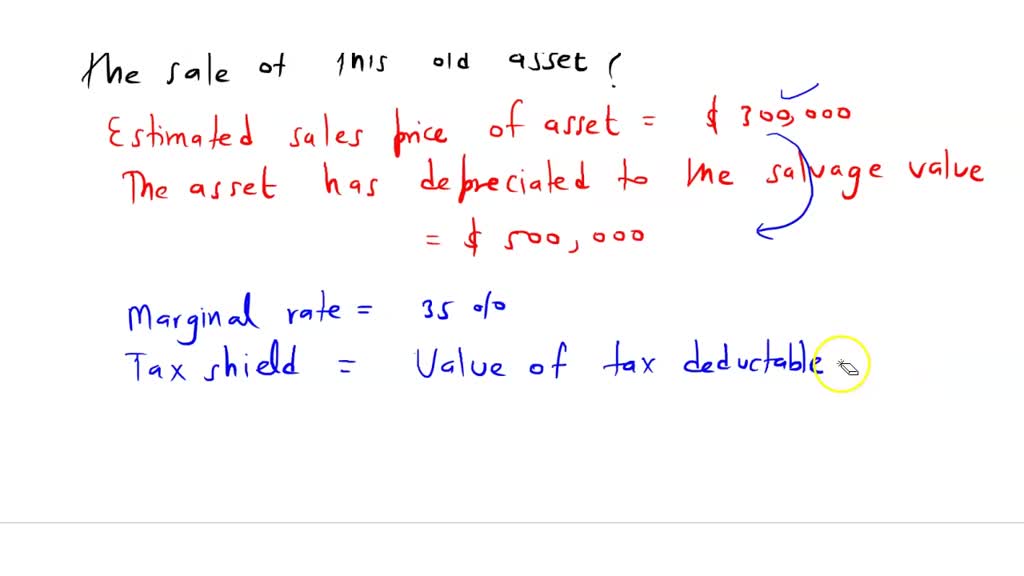 The sale of this old asset ?
Estimated sales price of asset = $ 300,000
The asset has depreciated to the salvage value
= $ 500,000
Marginal rate = 35 %
Tax shield = Value of tax deductable